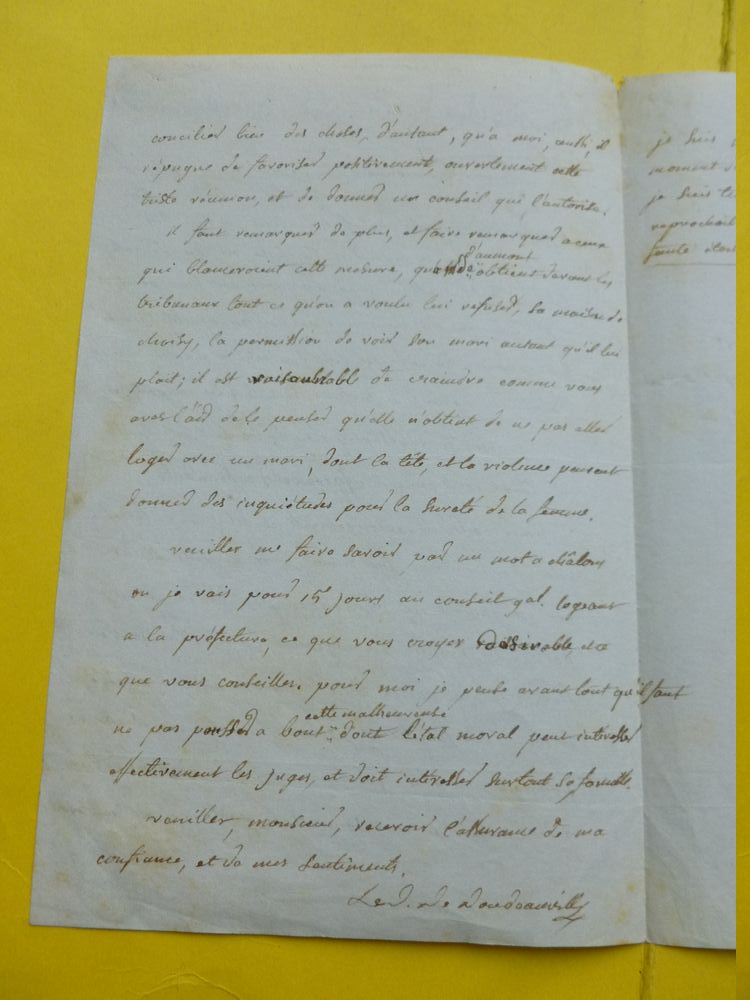 concilier bien des choses, d'autant, qu'à moi, aussi, il
répugne de favoriser positivement, ouvertement cette
triste réunion, et de donner un conseil qui l'autorise.
il faut remarquer de plus, et faire remarquer a ceux
d'aumont
qui blameroient cette mesure, que obtient devant les
tribunaux tout ce qu'on a voulu lui refuser, sa maison de
choisy, la permission de voir son mari autant qu'il lui
plait; il est de craindre comme vous
avez l'air de le penser qu'elle n'obtint de ne pas aller
loger avec un mari, dont la tête, et la violence peuvent
donner des inquiétudes pour la sureté de la femme.
veuillez me faire savoir par un mot a châlons
ou je vais pour 15 jours au conseil gal. logeant
a la préfecture, ce que vous croyez désirable, et ce
que vous conseillez. pour moi je pense avant tout qu'il faut
cette malheureuse
ne pas pousser a bout dont l'état moral peut intéresser
effectivement les juges, et doit intéresser surtout sa famille.
veuillez, monsieur, recevoir l'assurance de ma
confiance, et de mes sentiments.
Le d. de doudeauville
je suis
moment
je suis
reprochait
faute